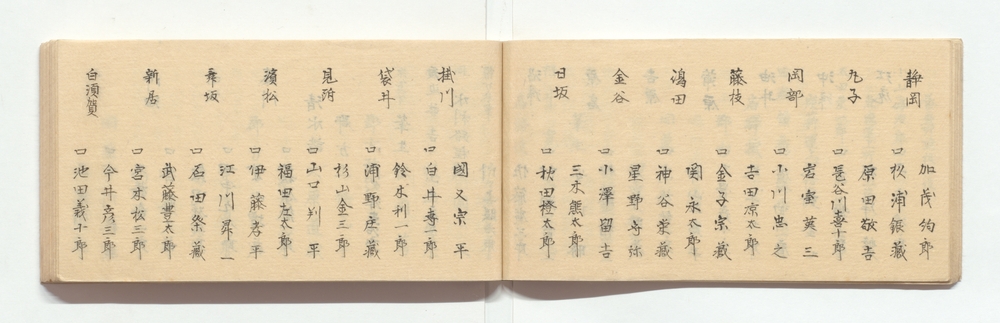 静岡
加茂絢郎
口松浦銀藏
丸子
原田敬吉
口長谷川喜十郎
岡部
岩室英三
口小川忠之
藤枝
吉田凉太郎
口金子宗藏
嶋田
関永太郎
口神谷栄藏
金谷
星野寿弥
口小澤留吉
日坂
三木熊太郎
口秋田橙太郎
掛川
國又宗平
口白井寿一郎
袋井
鈴木利一郎
口浦野庄藏
見附
杉山金三郎
口山口判平
濱松
福田左太郎
口伊藤孝平
舞坂
江川舜一
口石田粂藏
新居
武藤豊太郎
口宮木松三郎
白須賀
今井彦三郎
口池田義十郎